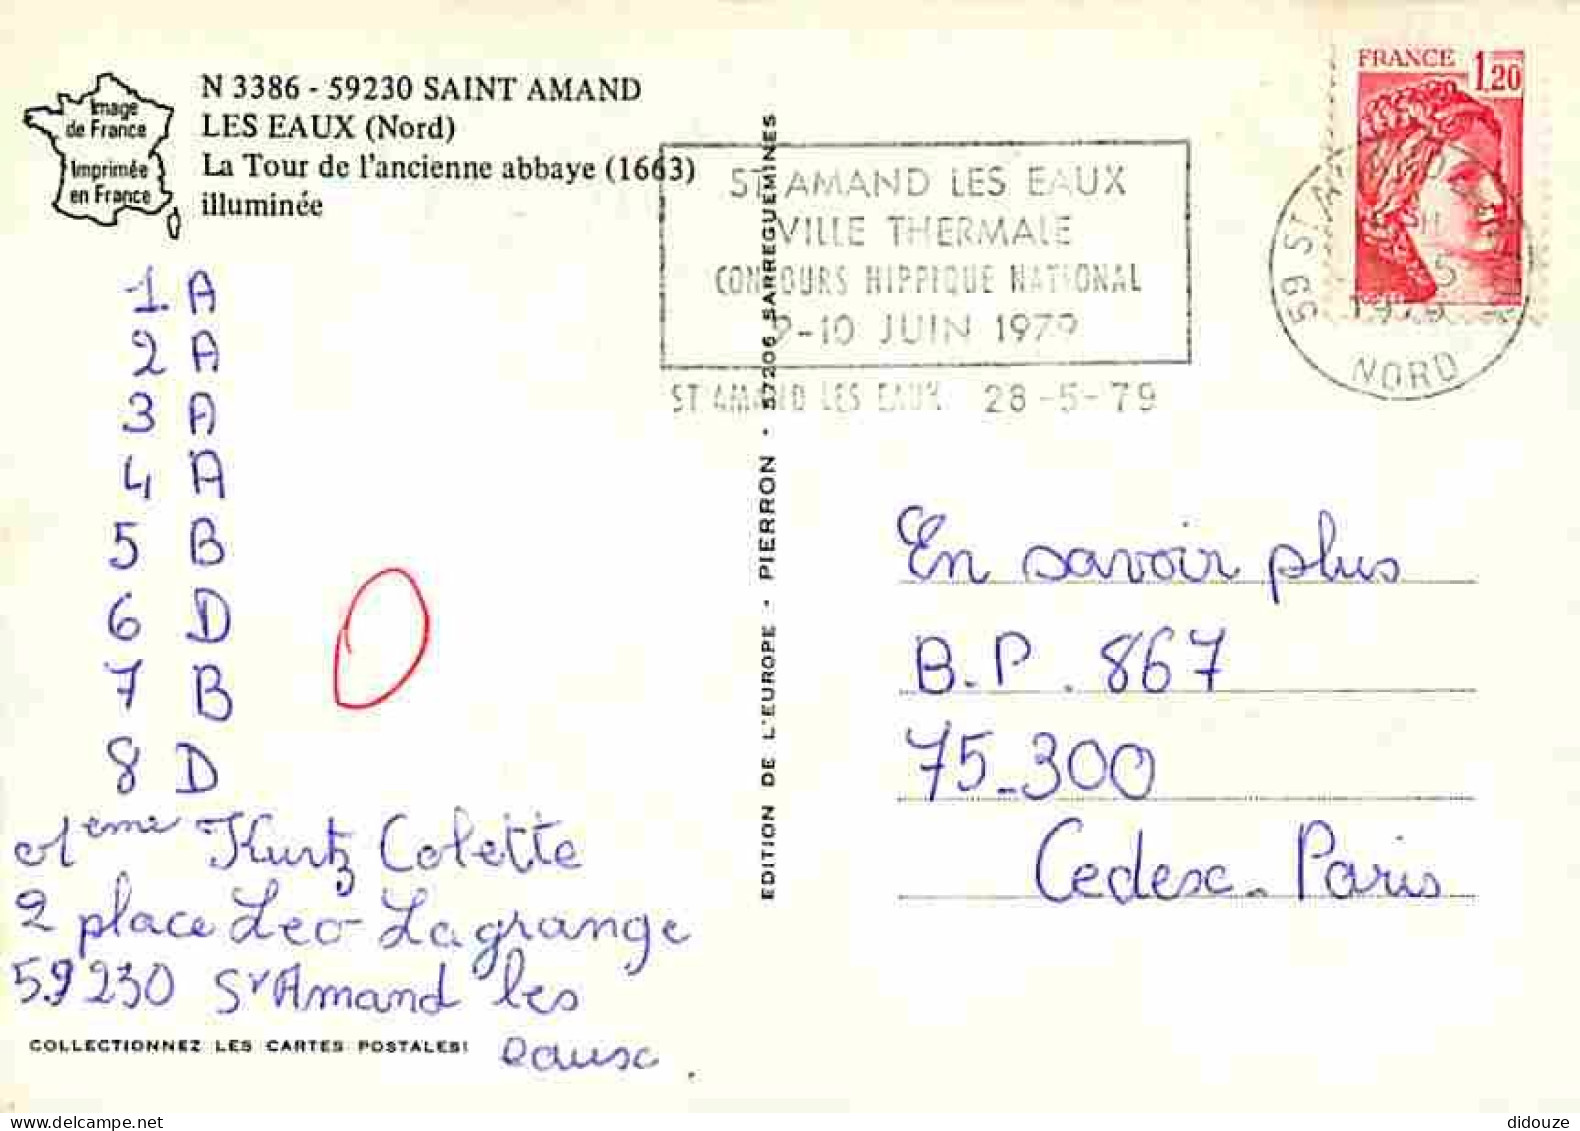 Image
de France
Imprimée
en France
N 3386 - 59230 SAINT AMAND
LES EAUX (Nord)
La Tour de l'ancienne abbaye (1663)
illuminée
1. A
2 A
3 A
4 A
5 B
6 D
7 B
8 D
Mème Kurtz Colette
2 place Léo-Lagrange
59230 St Amand les
eaux.
COLLECTIONNEZ LES CARTES POSTALES!
EDITION DE L'EUROPE • PIERRON • 57206 SARREGUEMINES
ST AMAND LES EAUX
VILLE THERMALE
CONCOURS HIPPIQUE NATIONAL
9-10 JUIN 1979
ST AMAND LES EAUX 28-5-79
FRANCE 1,20
59 ST
1979
NORD
En savoir plus
B.P. 867
75-300
Cedex-Paris
didouze